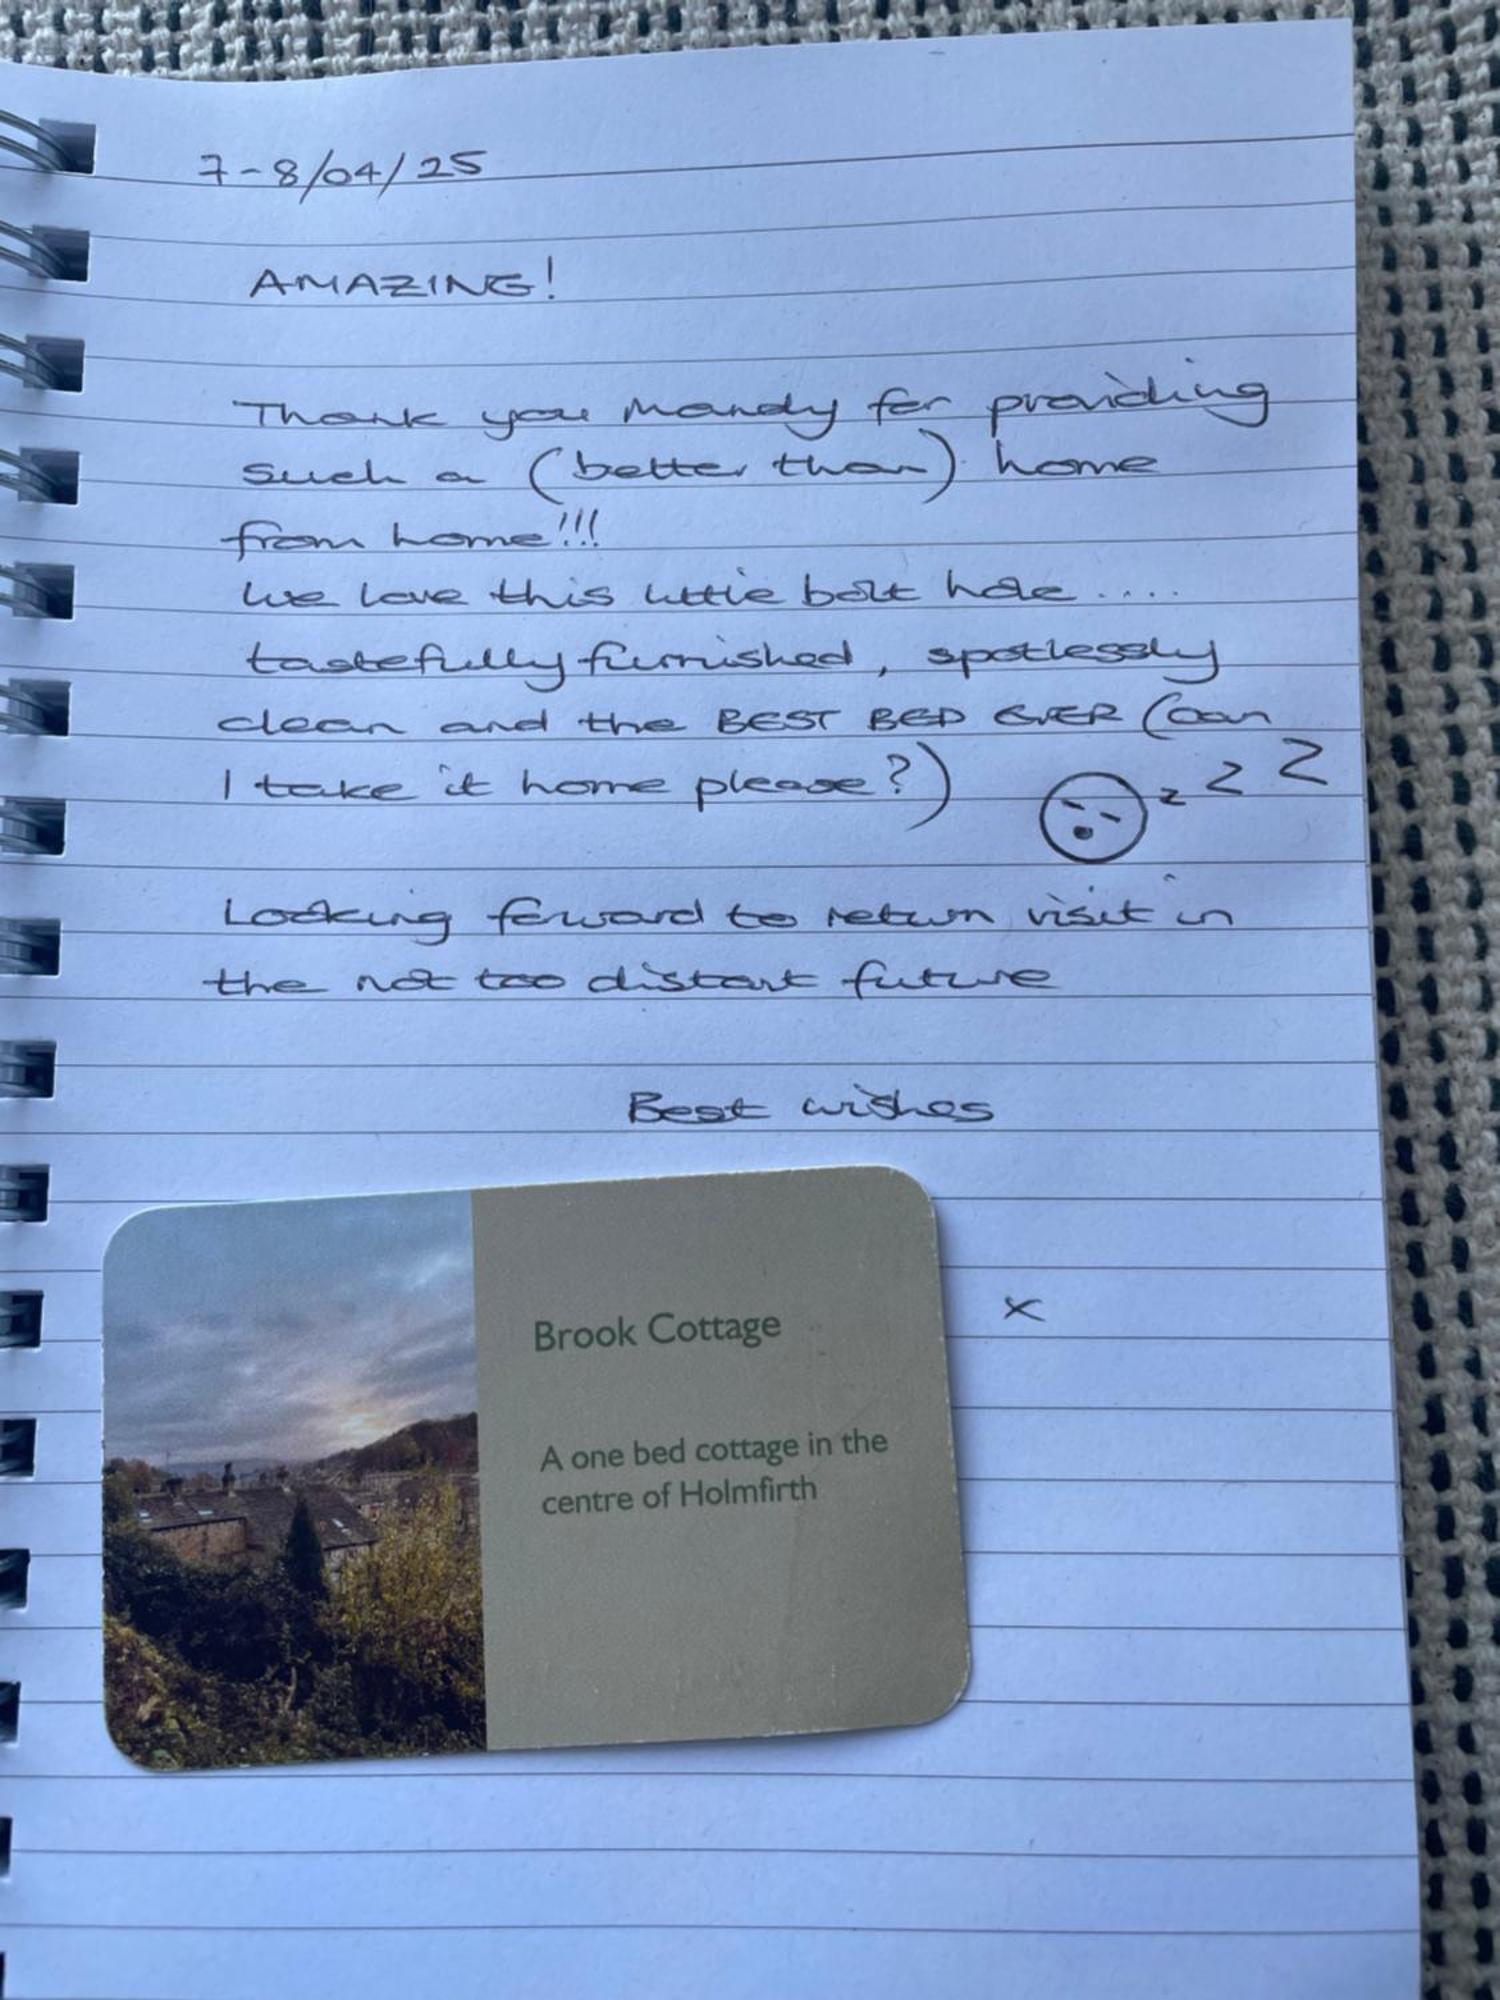 7-8/04/25
AMAZING!
Thank you Mandy for providing
such a (better than) home
from home!!!
We love this little bolt hole ....
tastefully furnished, spotlessly
clean and the BEST BED EVER (can
I take it home please?)
z z Z
Looking forward to return visit in
the not too distant future
Best wishes
x
Brook Cottage
A one bed cottage in the
centre of Holmfirth